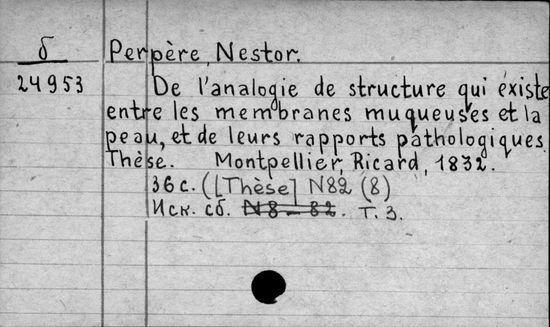 б
24953
Perpère, Nestor.
De l'analogie de structure qui existe
entre les membranes muqueuses et la
peau, et de leurs rapports pathologiques.
Thèse. Montpellier, Ricard, 1832.
36 с. ([Thèse] N82 (8)
Иск. сб. N8-82. Т. 3.